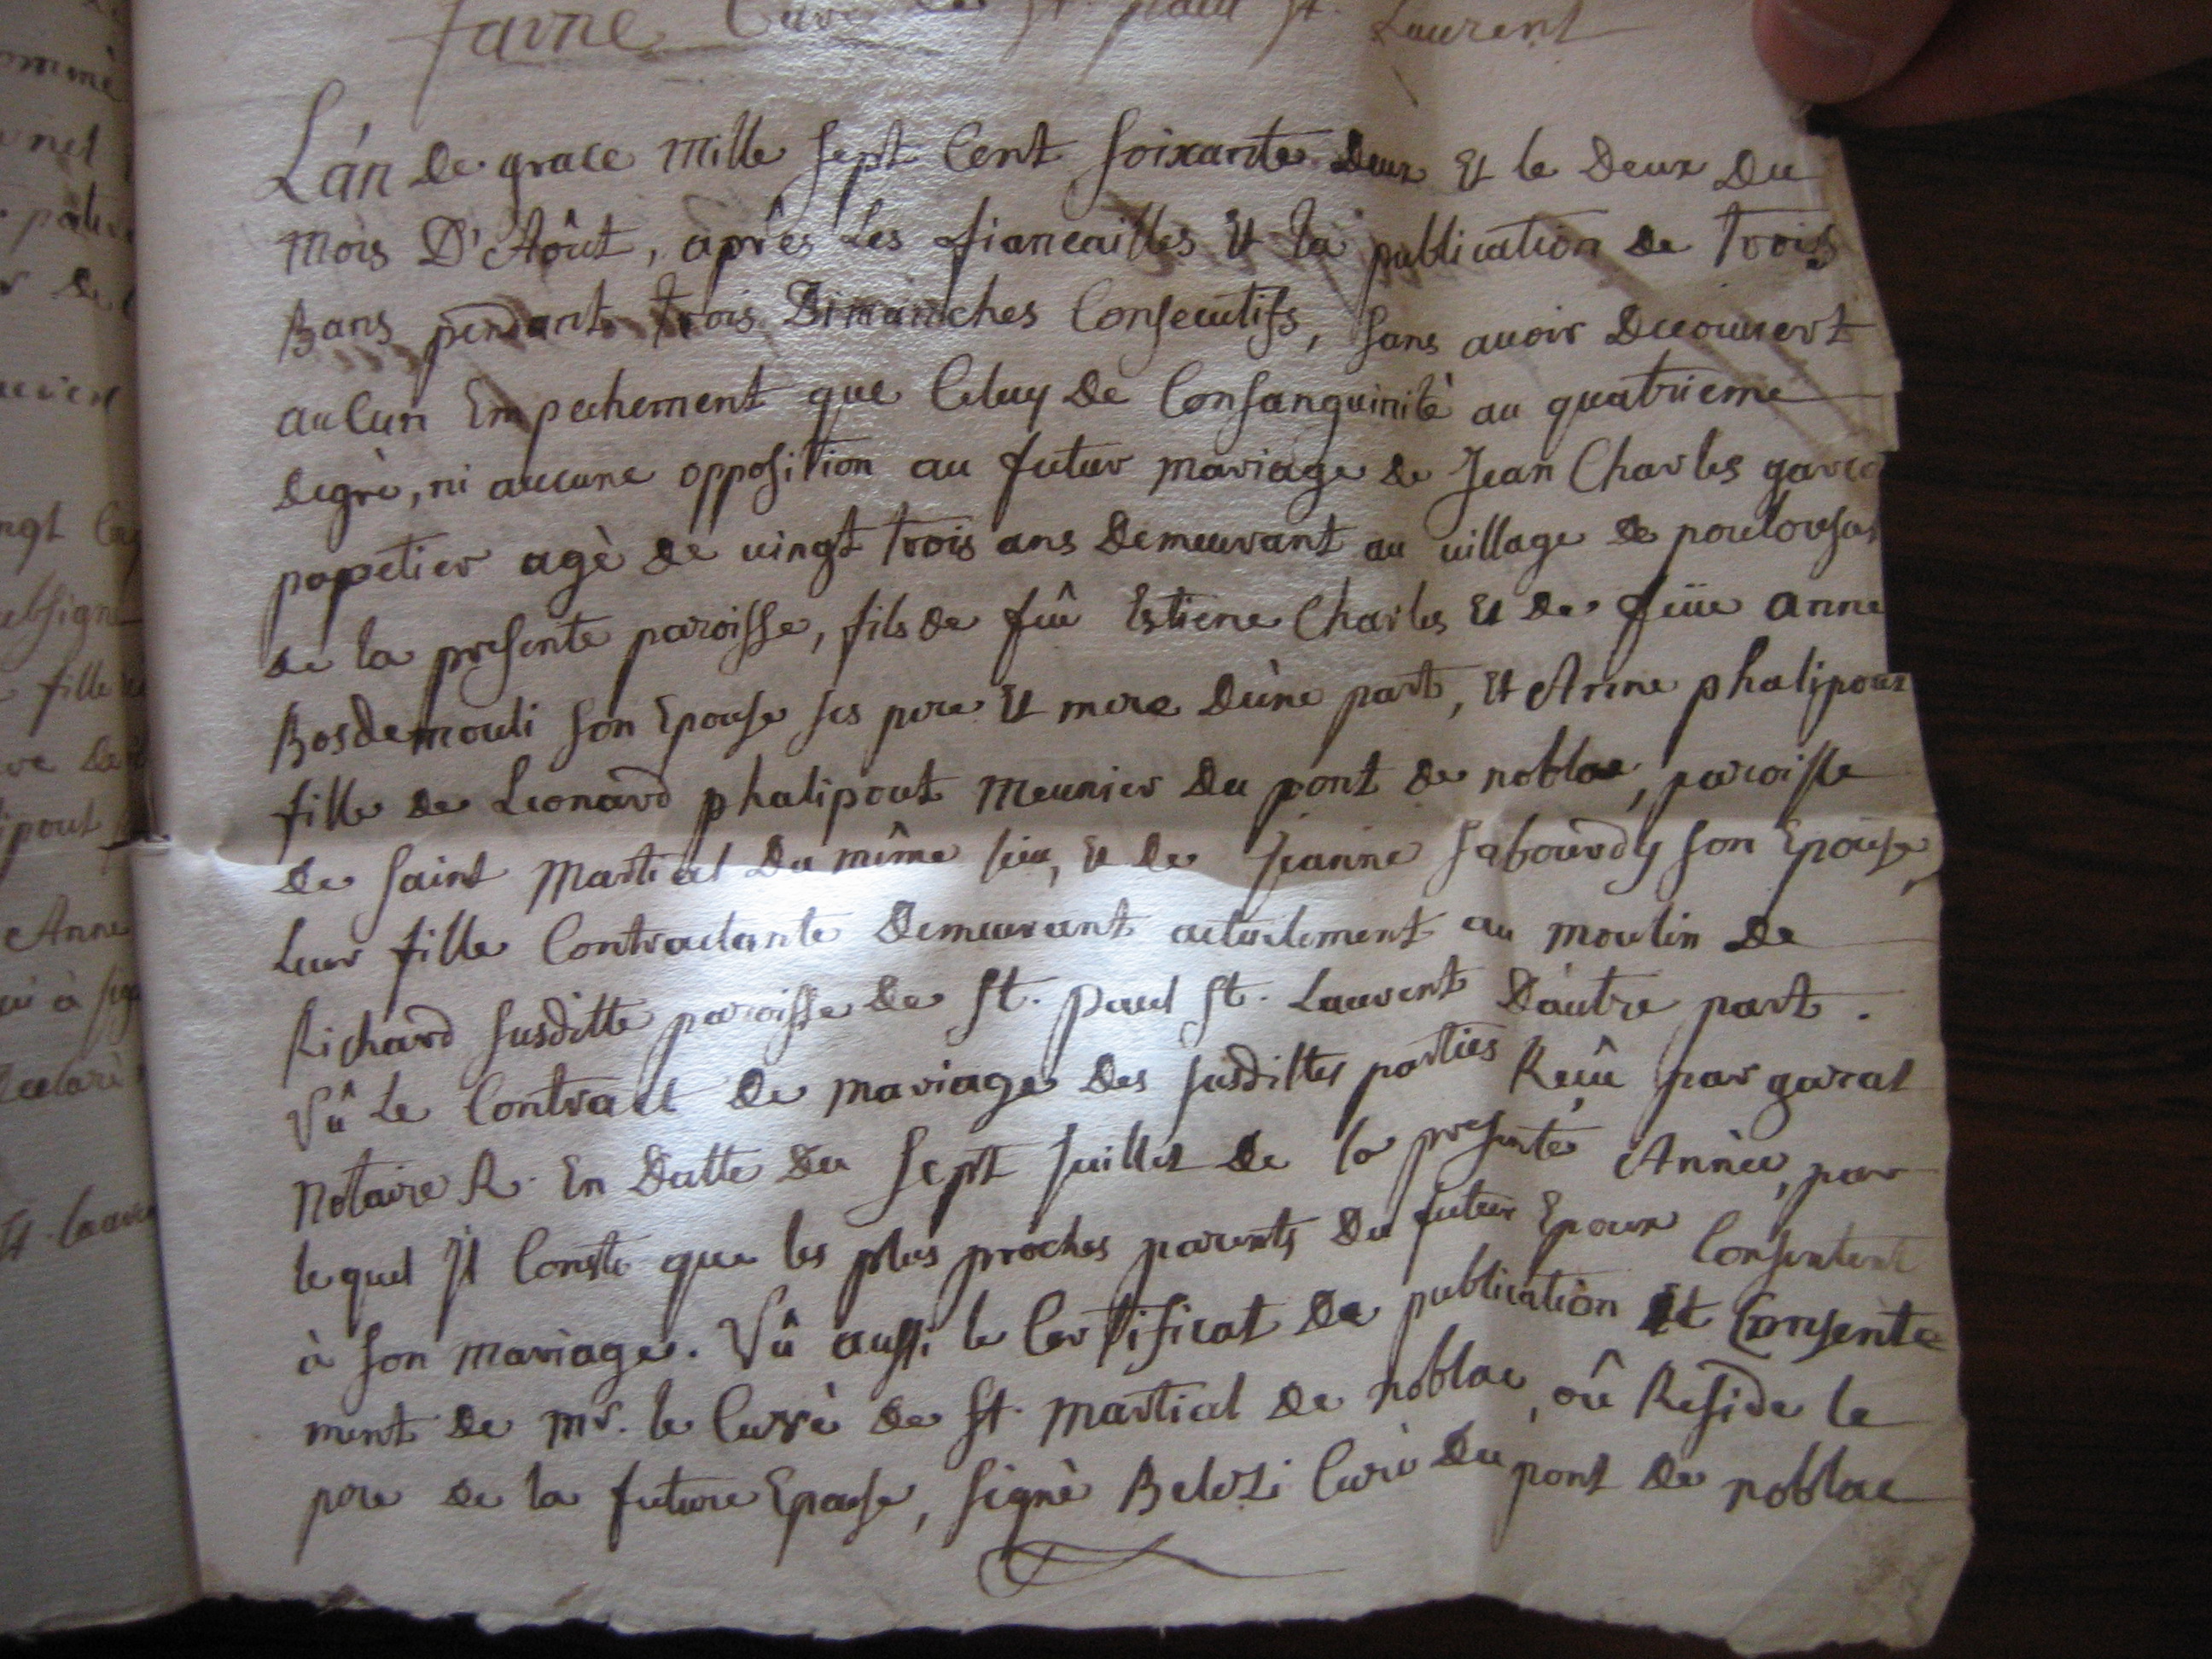 favre Curé de St. paul St. Laurent
L'án de grace mille sept Cent soixante deux Et le deux du
mois D'Aôut, apres les fiancailles Et la publication de trois
Bans pendant trois Dimainches Consecutifs, sans auoir decouuert
auCun Empechement que Celuy de Consanguinité au quatrieme
degre, ni aucune opposition au futur mariage de Jean Charles garcon
papetier agé de uingt trois ans demeurant au uillage de poulouyas
de la presente paroisse, fils de fû Estiene Charles Et de feüe Anne
Bosdemouli son Epouse ses pere Et mere d'une part, Et Anne phalipout
fille de Leonard phalipout Meunier du pont de noblac, paroisse
de saint Martial du même lieu, Et de Jeanne sabourdy son Epouse,
leur fille Contractante demeurant actuilement au moulin de
Richard susditte paroisse de St. Paul St. Laurent d'autre part.
Vû le Contract de mariage des susdittes parties Reçu par garat
Notaire R. En datte du sept juillet de la presente Année, par
lequel jl Conste que les plus proches parents du futur Epoux Consentent
à son mariage. Vû aussi le Certificat de publication Et Consente
ment de mr. le Curé de St. Martial de noblac, où Reside le
pere de la future Epouse, signé Belut Curé du pont de noblac